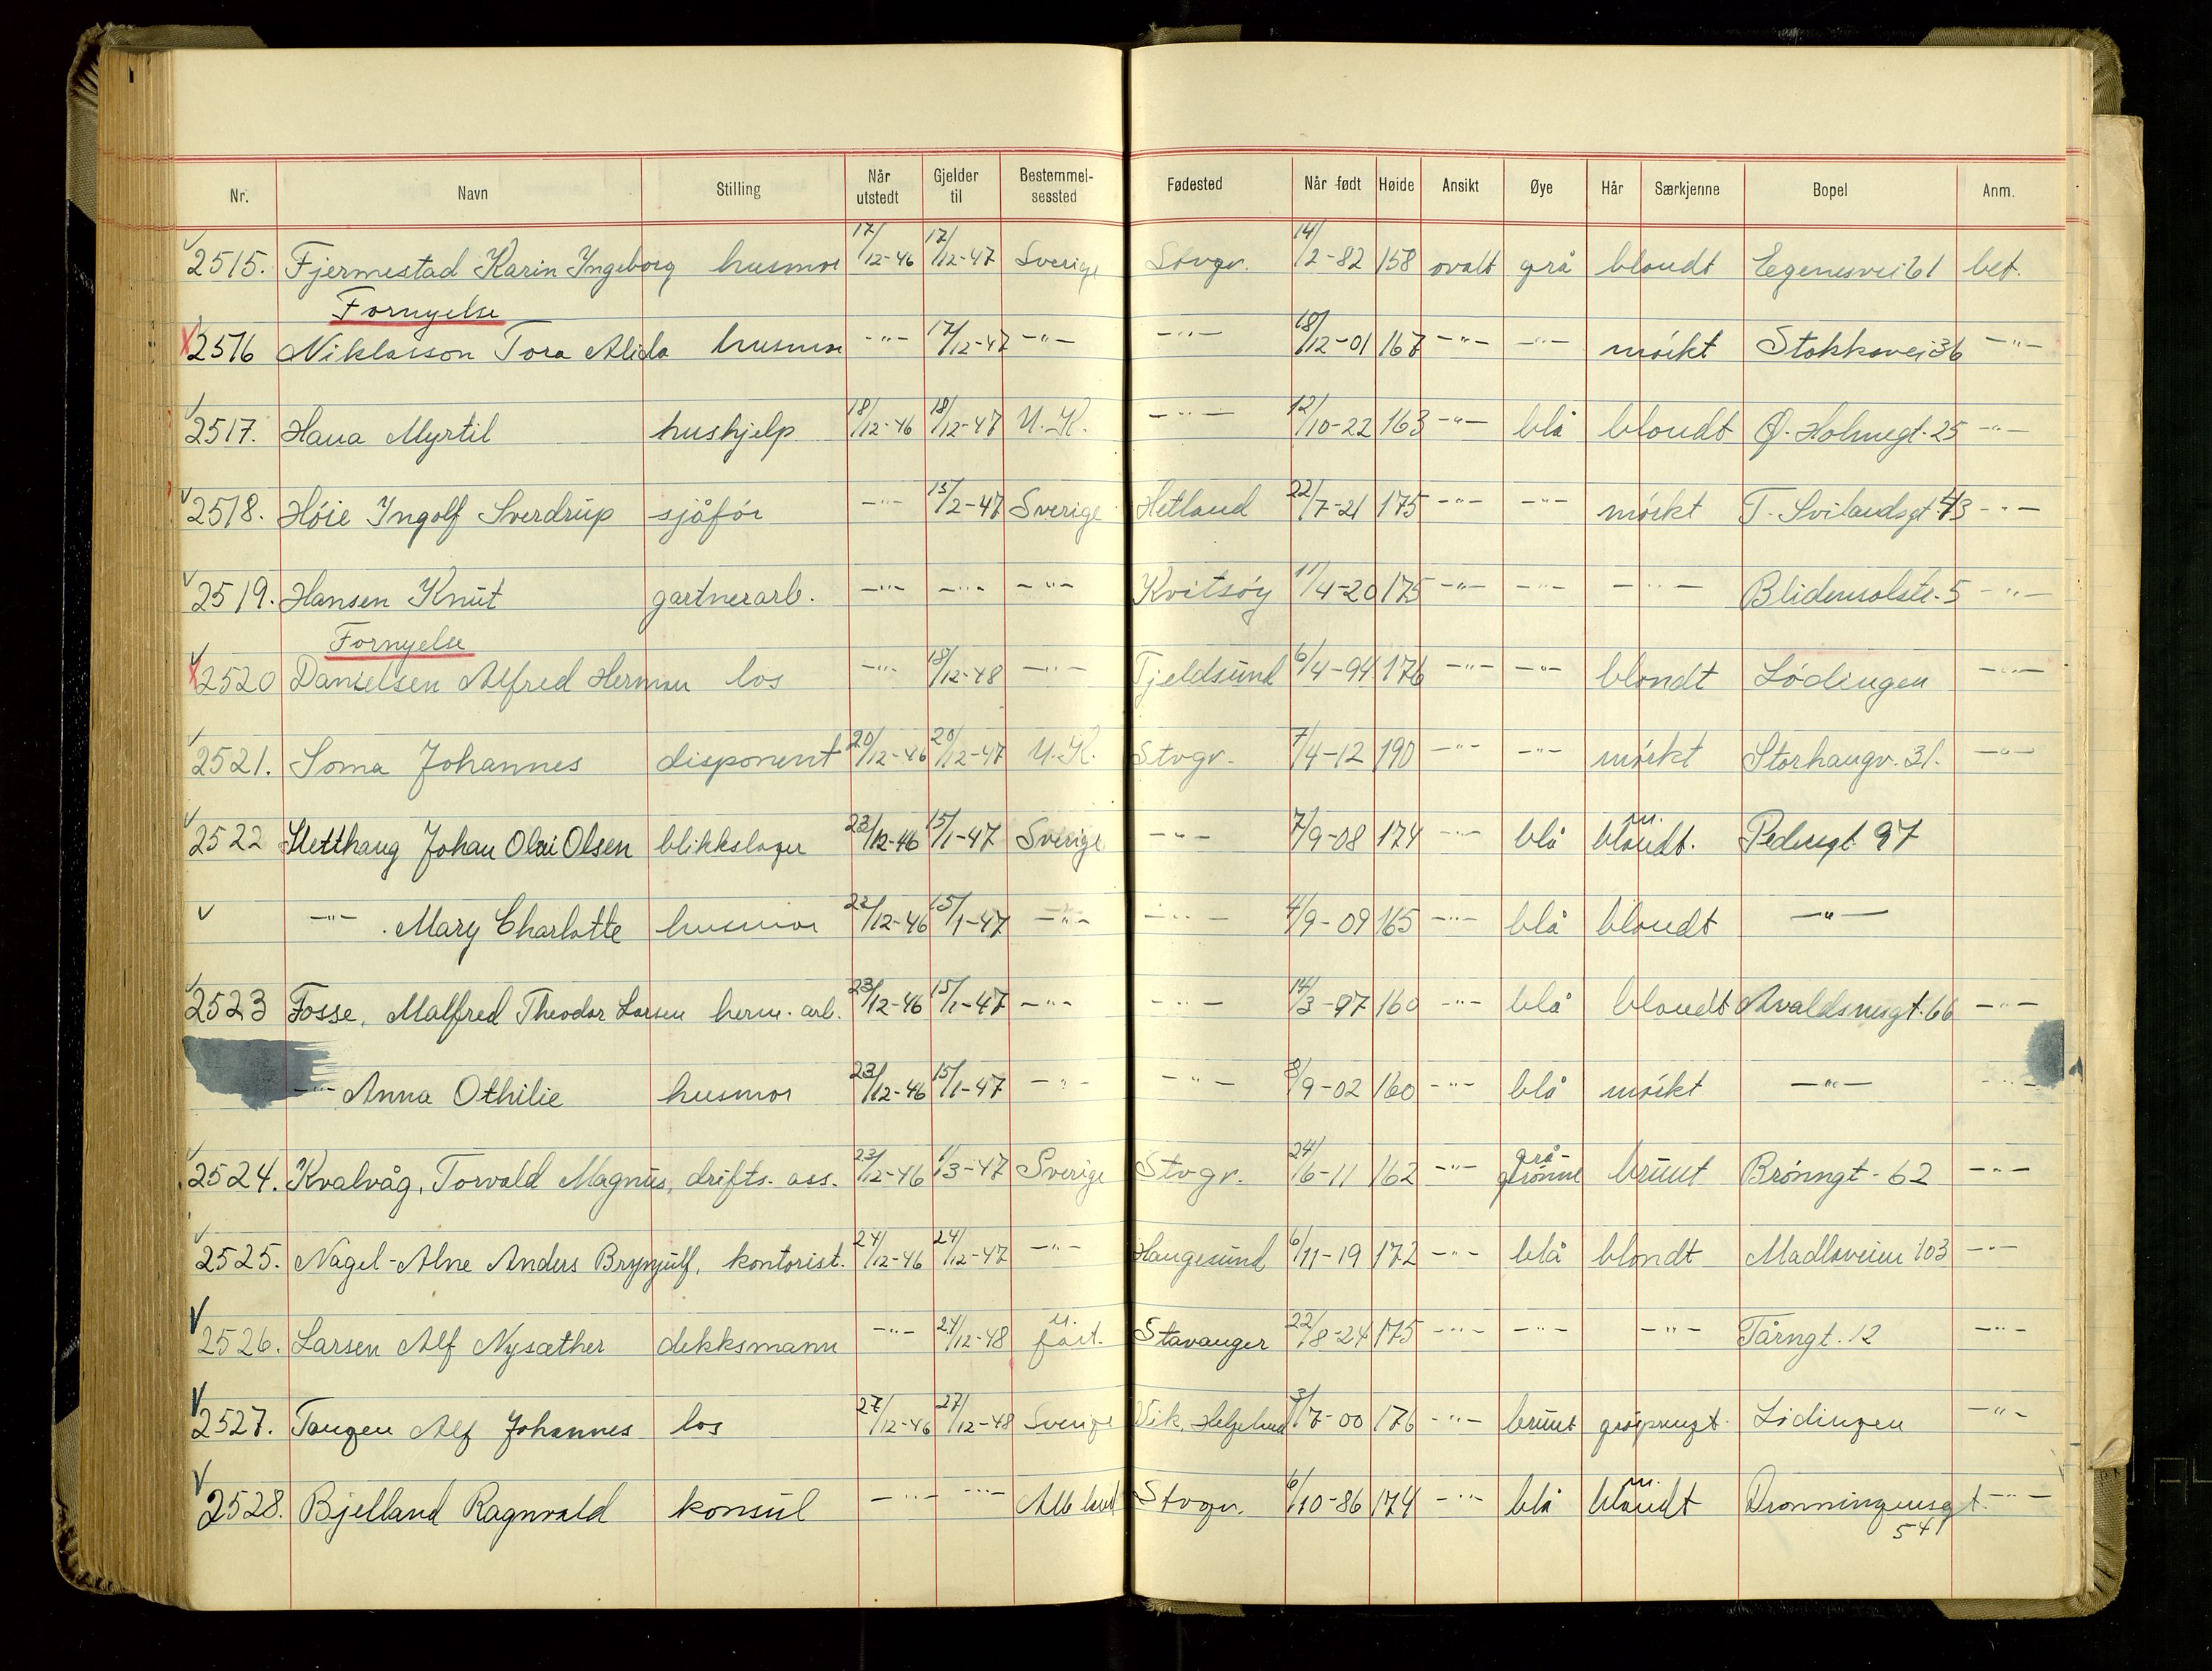 Nr. Navn Stilling Når utstedt Gjelder til Bestemmelsessted Fødested Når født Høide Ansikt Øye Hår Særkjenne Bopel Anm.
2515. Fjermestad Karin Ingeborg husmor 17/12-46 17/12-47 Sverige Stvgr. 14/2-82 158 ovalt grå blondt Egenesvei 61 bet.
Fornyelse
2516 Niklasson Tora Alida husmor -"- 17/12-47 -"- -"- 18/12-01 167 -"- -"- mörkt Stokkavei 36 -"-
2517. Hana Myrtil hushjelp 18/12-46 18/12-47 U.K. -"- 12/10-22 163 -"- blå blondt Ø. Holmegt. 25 -"-
2518. Höie Ingolf Sverdrup sjåför -"- 15/2-47 Sverige Hetland 22/7-21 175 -"- -"- mörkt T. Svilandsgt. 43 -"-
2519. Hansen Knut gartnerarb. -"- -"- -"- Kvitsöy 11/4-20 175 -"- -"- -"- Blidensolstr. 5 -"-
Fornyelse
2520 Danielsen Alfred Herman los -"- 18/12-48 -"- Tjeldsund 6/4-94 176 -"- -"- blondt Lödingen -"-
2521. Soma Johannes disponent 20/12-46 20/12-47 U.K. Stvgr. 7/4-12 190 -"- -"- mörkt Storhaugv. 31. -"-
2522 Sletthaug Johan Olai Olsen blikkslager 23/12-46 15/1-47 Sverige -"- 7/9-08 174 -"- blå m. blondt. Pedersgt. 97
-"- . Mary Charlotte husmor 22/12-46 15/1-47 -"- -"- 4/9-09 165 -"- blå blondt -"-
2523 Fosse, Malfred Theodor Larsen herm. arb. 23/12-46 15/1-47 -"- -"- 14/3-97 160 -"- blå blondt Avaldsnesgt. 66 -"-
-"- Anna Othilie husmor 23/12-46 15/1-47 -"- -"- 8/9-02 160 -"- blå mörkt -"- -"-
2524. Kvalvåg, Torvald Magnus, drifts. ass. 23/12-46 1/3-47 Sverige Stvgr. 24/6-11 162 -"- grå-grönne brunt Brönngt. 62 -"-
2525. Nagel-Alne Anders Brynjulf, kontorist. 24/12-46 24/12-47 -"- Haugesund 6/11-19 172 -"- blå blondt Madlaveien 103 -"-
2526. Larsen Alf Nysæther dekksmann -"- 24/12-48 u. fart. Stavanger 22/8-24 175 -"- -"- -"- Tårngt. 12 -"-
2527. Tangen Alf Johannes los 27/12-46 27/12-48 Sverige Vik, 3/7-00 176 -"- brunt gråsprengt. Lödingen -"-
2528. Bjelland Ragnvald konsul -"- -"- Alle land Stvgr. 6/10-86 174 -"- blå m. blondt Dronningensgt. 54 -"-